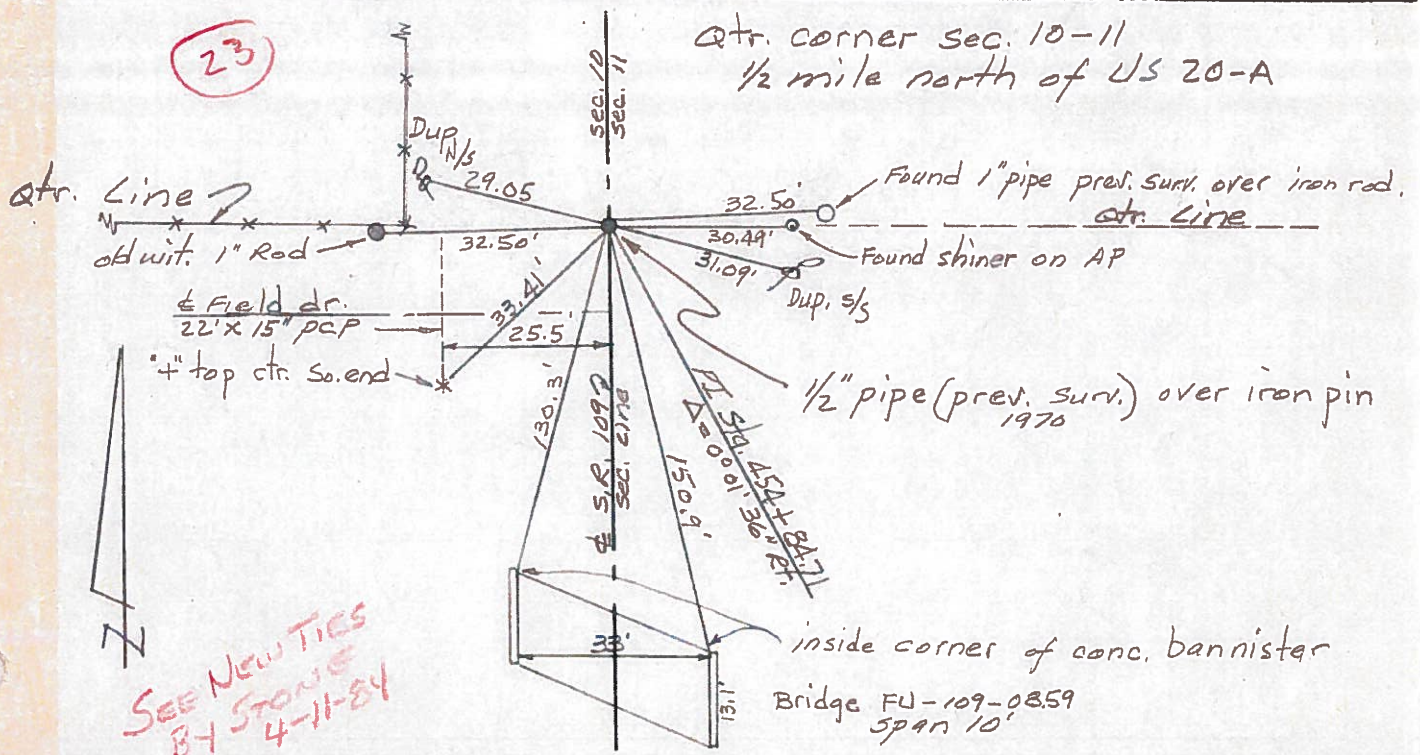 23
Qtr. corner sec. 10-11
1/2 mile north of US 20-A
sec. 10
sec. 11
Dup. N/S
29.05
Qtr. Line
32.50'
Found 1" pipe prev. surv. over iron rod.
Qtr. Line
30.49'
Found shiner on AP
31.09'
Dup. S/S
old wit. 1" Rod
32.50'
33.41'
℄ Field dr.
22' x 15" PCP
25.5'
"+" top ctr. So. end
1/2" pipe (prev. surv.) over iron pin
1970
130.3'
℄ S.R. 109
sec. Line
150.9'
PI Sta. 454+84.71
Δ = 0°01'36" Rt.
N
33'
13.1'
inside corner of conc. bannister
Bridge FU-109-0859
Span 10'
SEE NEW TIES
BY STONE
4-11-84